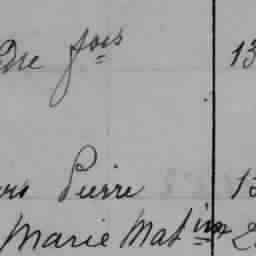 dre fois 13
ers Pierre 13
Marie Mat in 2